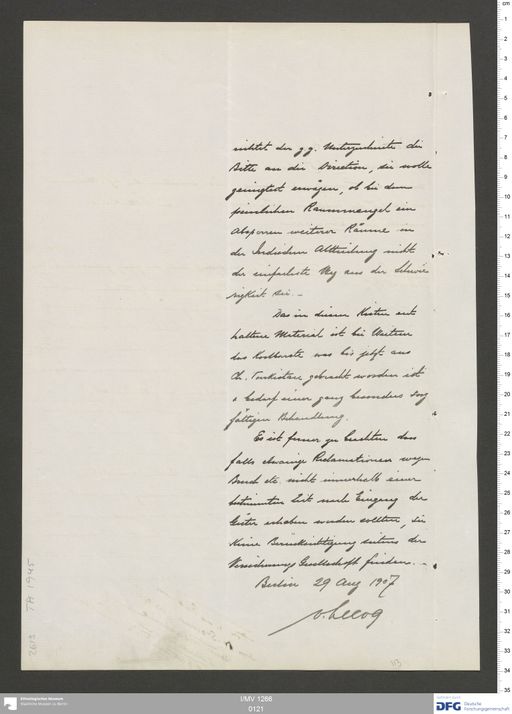 richtet der g. g. Unterzeichnete die
Bitte an die Direction, sie wolle
geneigtest erwägen, ob bei dem
peinlichen Raummangel ein
Absperren weiterer Räume in
der Indischen Abtheilung nicht
der einfachste Weg aus der Schwie
rigkeit sei. –
Das in diesen Kisten ent
haltene Material ist bei Weitem
das Kostbarste was bis jetzt aus
Ch. Turkistan gebracht worden ist
& bedarf einer ganz besonders sorg
fältigen Behandlung.
Es ist ferner zu beachten dass
falls etwaige Reclamationen wegen
Bruch etc. nicht innerhalb einer
bestimmten Zeit nach Eingang der
Güter erhoben werden sollten, sie
keine Berücksichtigung seitens der
Versicherungs Gesellschaft finden. –
Berlin 29 Aug 1907
v. Lecoq
TA 1945
2613
113
Ethnologisches Museum
Staatliche Museen zu Berlin
I/MV 1266
0121
DFG Deutsche
Forschungsgemeinschaft